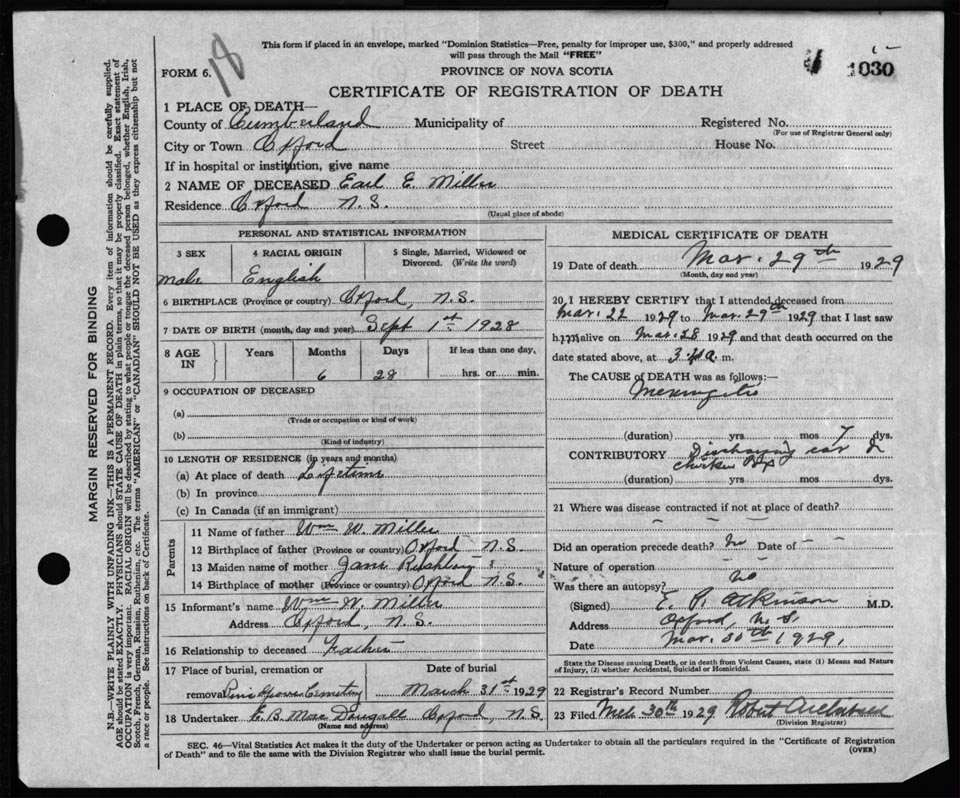 This form if placed in an envelope, marked "Dominion Statistics—Free, penalty for improper use, $300," and properly addressed
will pass through the Mail "FREE"
18
1030
FORM 6.
PROVINCE OF NOVA SCOTIA
CERTIFICATE OF REGISTRATION OF DEATH
MARGIN RESERVED FOR BINDING
N.B.—WRITE PLAINLY WITH UNFADING INK—THIS IS A PERMANENT RECORD. Every item of information should be carefully supplied.
AGE should be stated EXACTLY. PHYSICIANS should STATE CAUSE OF DEATH in plain terms, so that it may be properly classified. Exact statement of
OCCUPATION is very important. RACIAL ORIGIN will be described by stating to what people or tongue the deceased person belonged, whether English, Irish,
Scotch, French, German, Russian, Ruthenian, etc. The terms "AMERICAN" or "CANADIAN" SHOULD NOT BE USED as they express citizenship but not
a race or people. See instructions on back of Certificate.
1 PLACE OF DEATH—
County of Cumberland Municipality of Registered No.
(For use of Registrar General only)
City or Town Oxford Street House No.
If in hospital or institution, give name
2 NAME OF DECEASED Earl E. Miller
Residence Oxford N.S.
(Usual place of abode)
PERSONAL AND STATISTICAL INFORMATION
3 SEX 4 RACIAL ORIGIN 5 Single, Married, Widowed or
Divorced. (Write the word)
male English
6 BIRTHPLACE (Province or country) Oxford, N.S.
7 DATE OF BIRTH (month, day and year) Sept 1st 1928
8 AGE IN Years Months Days If less than one day,
6 28 hrs. or min.
9 OCCUPATION OF DECEASED
(a)
(Trade or occupation or kind of work)
(b)
(Kind of industry)
10 LENGTH OF RESIDENCE (in years and months)
(a) At place of death Lifetime
(b) In province
(c) In Canada (if an immigrant)
Parents
11 Name of father Wm W. Miller
12 Birthplace of father (Province or country) Oxford N.S.
13 Maiden name of mother Jane
14 Birthplace of mother (Province or country) Oxford N.S.
15 Informant's name Wm W. Miller
Address Oxford, N.S.
16 Relationship to deceased Father
17 Place of burial, cremation or Date of burial
removal Pine Grove Cemetery March 31st 1929
18 Undertaker E. B. MacDougall Oxford, N.S.
(Name and address)
MEDICAL CERTIFICATE OF DEATH
19 Date of death Mar. 29th 1929
(Month, day and year)
20 I HEREBY CERTIFY that I attended deceased from
Mar. 22 1929 to Mar. 29th 1929 that I last saw
him alive on Mar. 28 1929 and that death occurred on the
date stated above, at 3 a. m.
The CAUSE of DEATH was as follows:—
Meningitis
(duration) yrs mos 7 dys.
CONTRIBUTORY Discharging ear &
chicken pox
(duration) yrs. mos. dys.
21 Where was disease contracted if not at place of death?
Did an operation precede death? no Date of
Nature of operation
Was there an autopsy? no
(Signed) E. P. Atkinson M.D.
Address Oxford, N.S.
Date Mar. 30th 1929,
State the Disease causing Death, or in death from Violent Causes, state (1) Means and Nature
of Injury, (2) whether Accidental, Suicidal or Homicidal.
22 Registrar's Record Number
23 Filed 30th 1929 Robert
(Division Registrar)
SEC. 46—Vital Statistics Act makes it the duty of the Undertaker or person acting as Undertaker to obtain all the particulars required in the "Certificate of Registration
of Death" and to file the same with the Division Registrar who shall issue the burial permit.
(OVER)